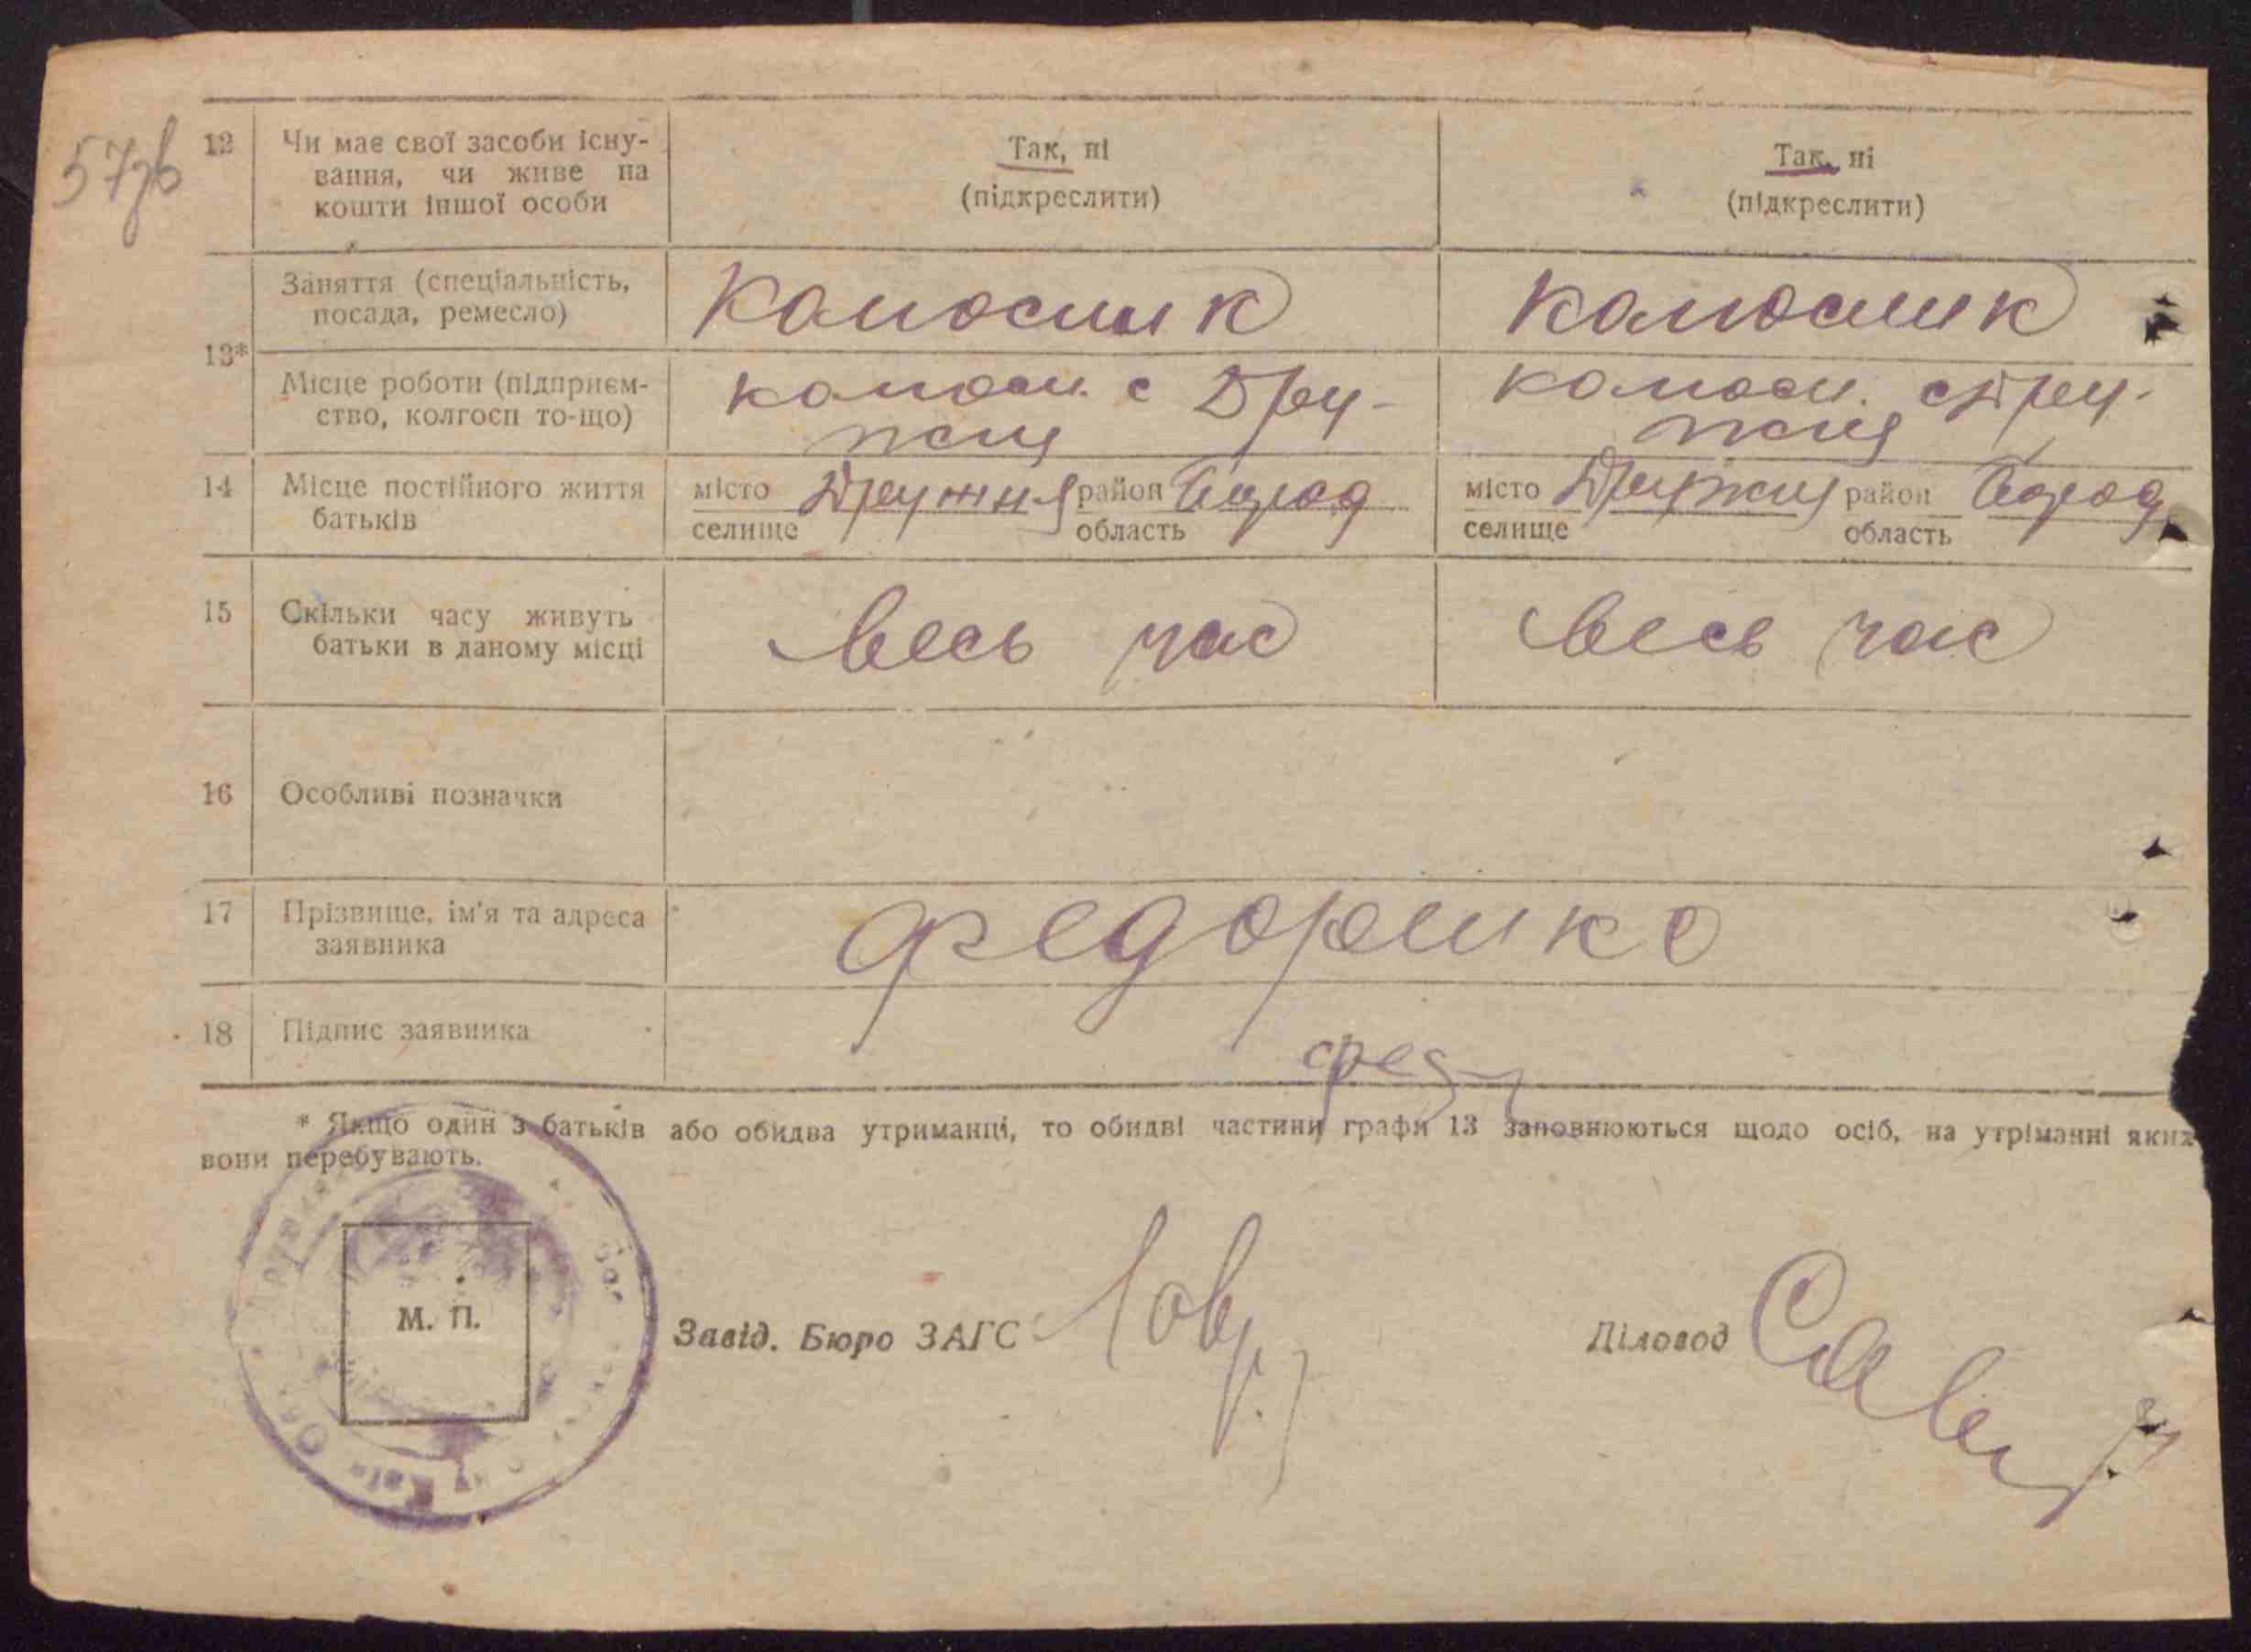 57зв
12 Чи має свої засоби існу- Так, ні Так, ні
вання, чи живе на (підкреслити) (підкреслити)
кошти іншої особи
13* Заняття (спеціальність, колосник колосник
посада, ремесло)
Місце роботи (підприєм- колосн. с Дру- колосн. с Дру-
ство, колгосп то-що) жня жня
14 Місце постійного життя місто Дружня район Бород місто Дружня район Бород
батьків селище область селище область
15 Скільки часу живуть весь час весь час
батьки в даному місці
16 Особливі позначки
17 Прізвище, ім'я та адреса Федоренко
заявника
18 Підпис заявника Фед
* Якщо один з батьків або обидва утриманці, то обидві частини графи 13 заповнюються щодо осіб, на утріманні яких
вони перебувають.
М. П.
Завід. Бюро ЗАГС
Діловод